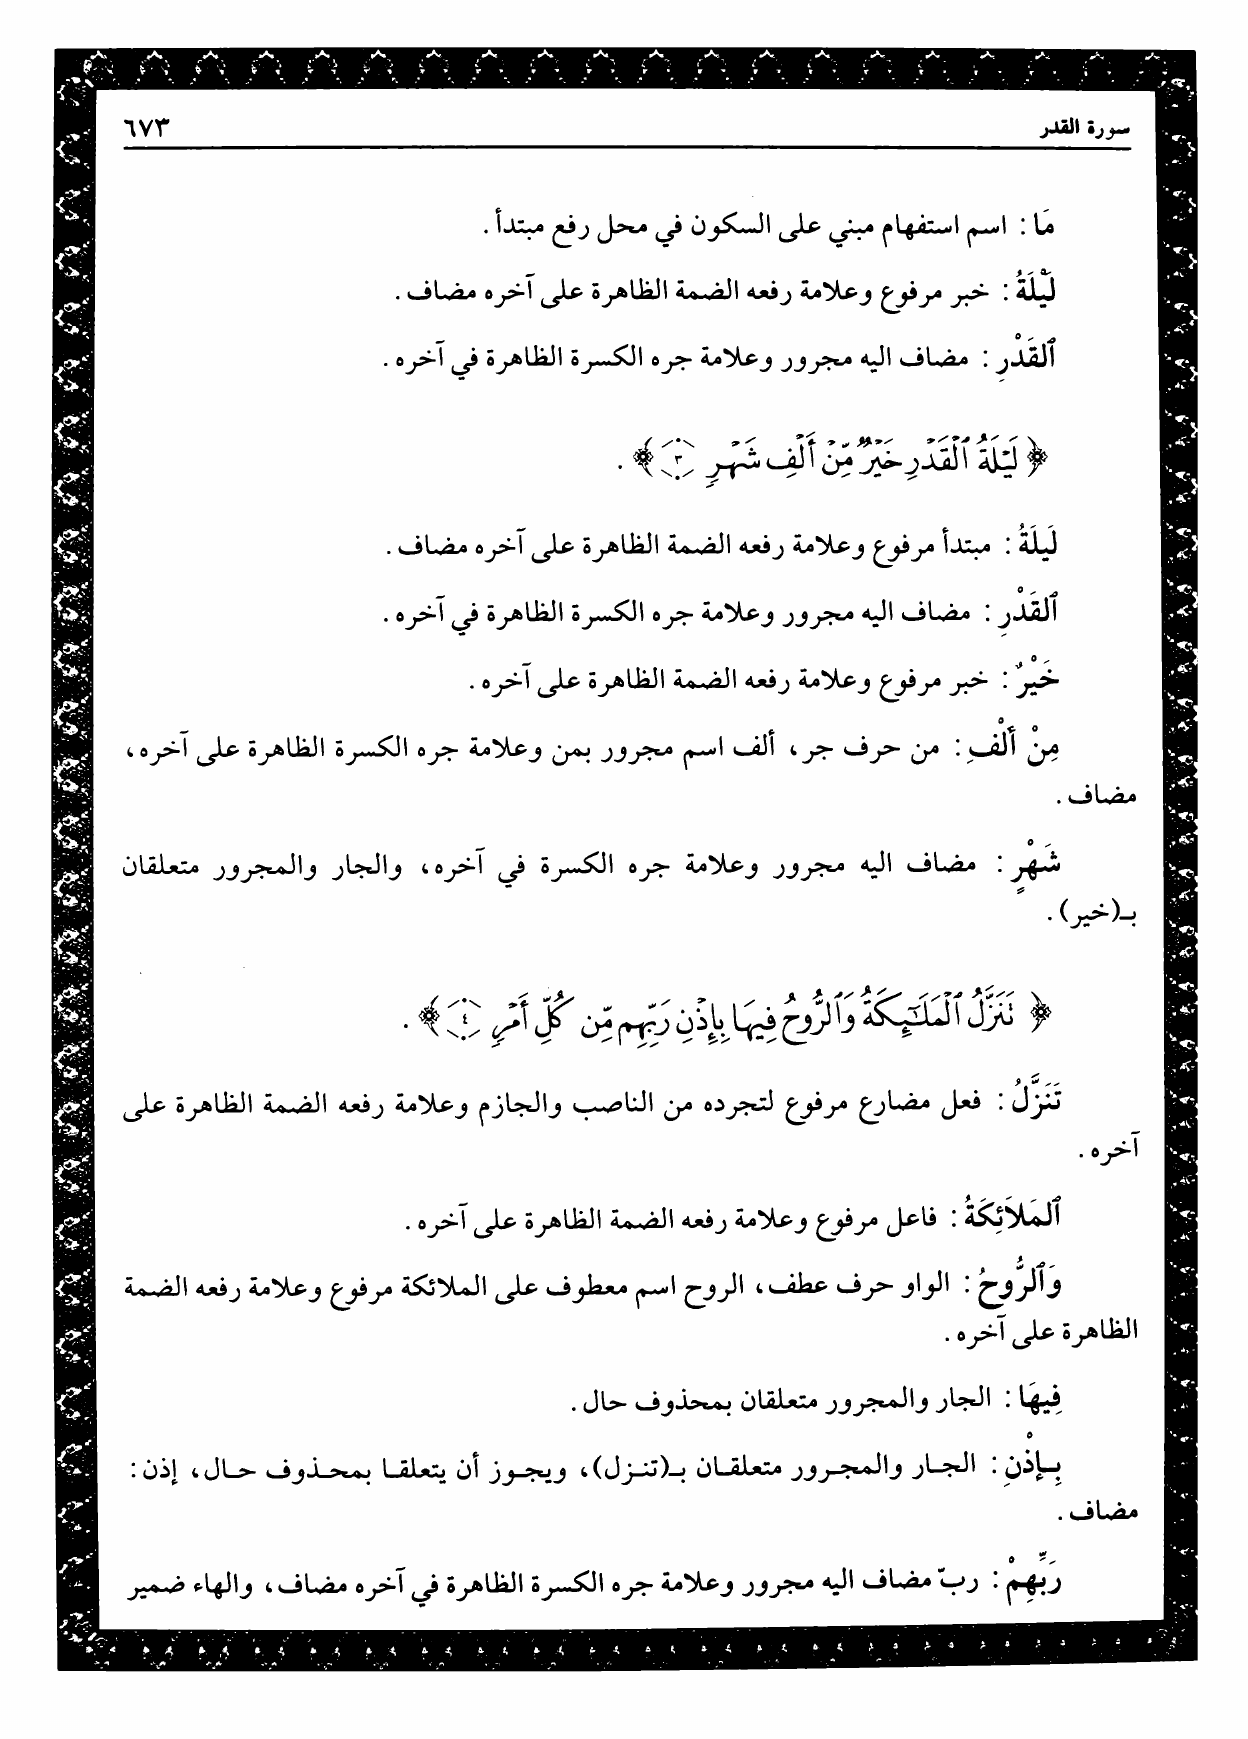 سورة القدر
٦٧٣
مَا : اسم استفهام مبني على السكون في محل رفع مبتدأ .
لَيْلَةُ : خبر مرفوع وعلامة رفعه الضمة الظاهرة على آخره مضاف .
ٱلقَدْرِ : مضاف اليه مجرور وعلامة جره الكسرة الظاهرة في آخره .
﴿ لَيْلَةُ ٱلْقَدْرِ خَيْرٌ مِّنْ أَلْفِ شَهْرٍ ٣ ﴾ .
لَيلَةُ : مبتدأ مرفوع وعلامة رفعه الضمة الظاهرة على آخره مضاف .
ٱلقَدْرِ : مضاف اليه مجرور وعلامة جره الكسرة الظاهرة في آخره .
خَيْرٌ : خبر مرفوع وعلامة رفعه الضمة الظاهرة على آخره .
مِنْ أَلْفِ : من حرف جر ، ألف اسم مجرور بمن وعلامة جره الكسرة الظاهرة على آخره ،
مضاف .
شَهْرٍ : مضاف اليه مجرور وعلامة جره الكسرة في آخره، والجار والمجرور متعلقان
بـ(خير) .
﴿ تَنَزَّلُ ٱلْمَلَٰٓئِكَةُ وَٱلرُّوحُ فِيهَا بِإِذْنِ رَبِّهِم مِّن كُلِّ أَمْرٍ ٤ ﴾ .
تَنَزَّلُ : فعل مضارع مرفوع لتجرده من الناصب والجازم وعلامة رفعه الضمة الظاهرة على
آخره .
ٱلمَلَائِكَةُ : فاعل مرفوع وعلامة رفعه الضمة الظاهرة على آخره .
وَٱلرُّوحُ : الواو حرف عطف، الروح اسم معطوف على الملائكة مرفوع وعلامة رفعه الضمة
الظاهرة على آخره .
فِيهَا : الجار والمجرور متعلقان بمحذوف حال .
بِإذْنِ : الجار والمجرور متعلقان بـ(تنزل)، ويجوز أن يتعلقا بمحذوف حال، إذن :
مضاف .
رَبِّهِمْ : ربّ مضاف اليه مجرور وعلامة جره الكسرة الظاهرة في آخره مضاف، والهاء ضمير